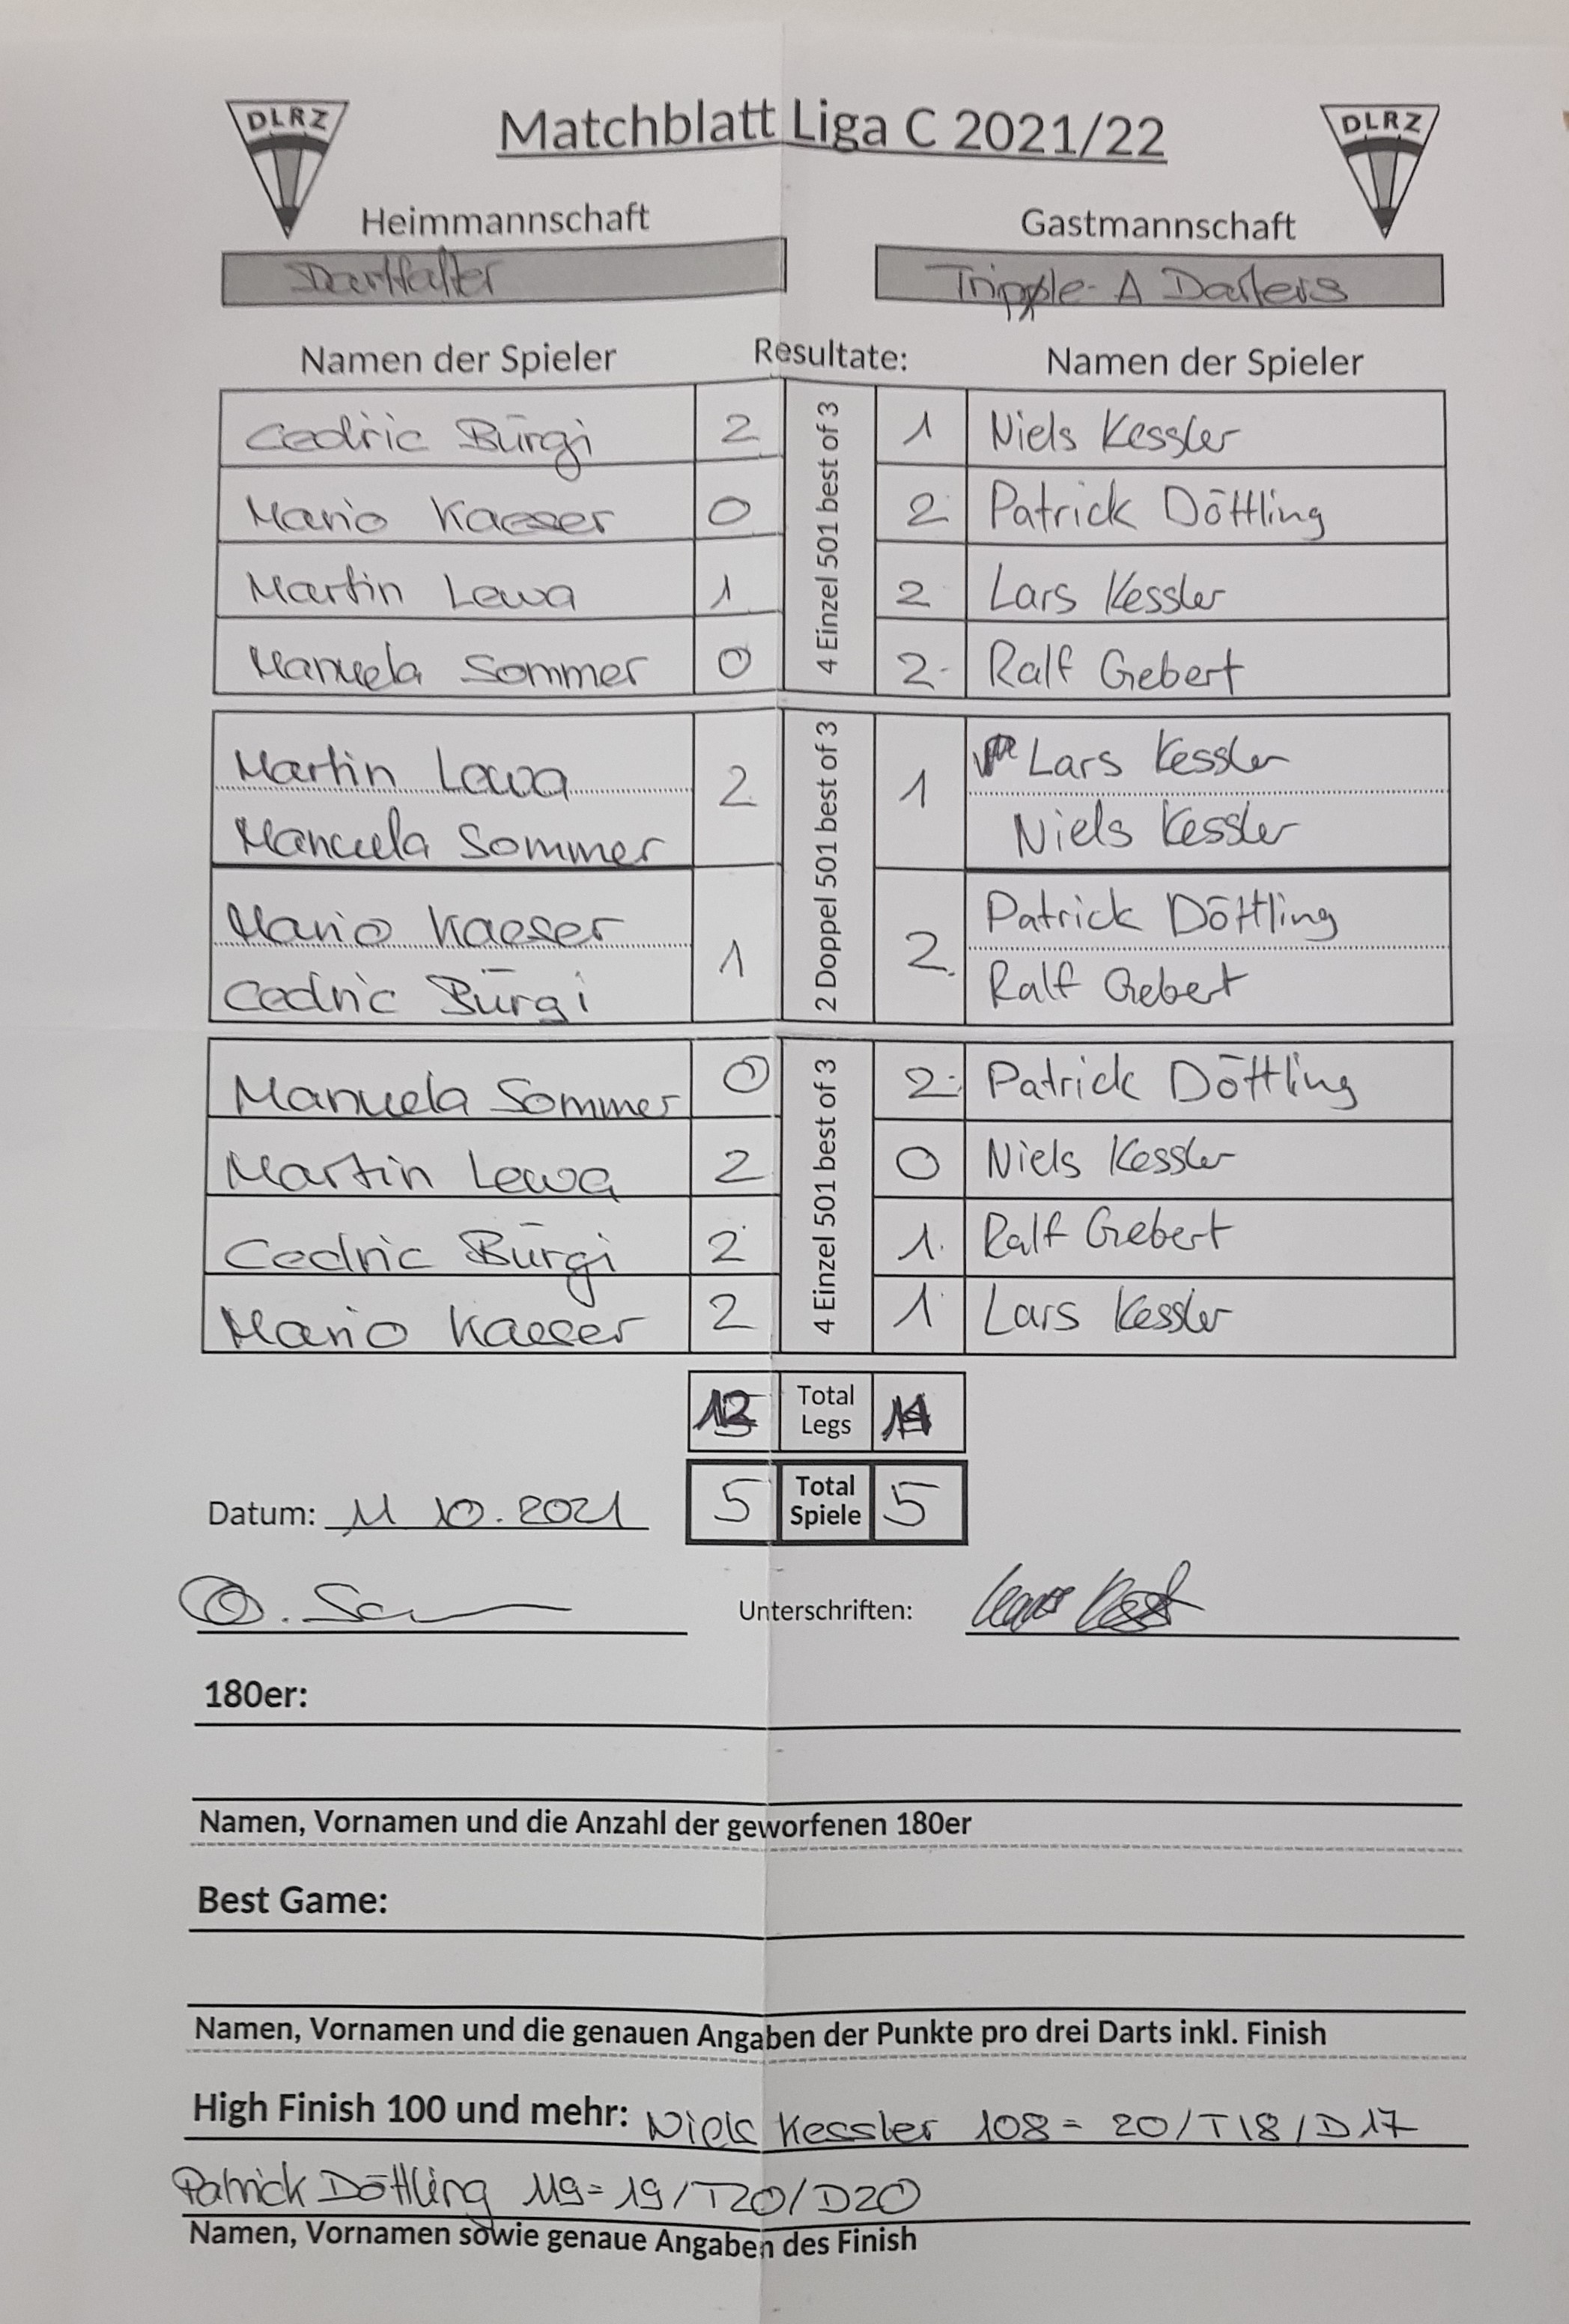 DLRZ Matchblatt Liga C 2021/22 DLRZ
Heimmannschaft Gastmannschaft
Dartfalter Tripple-A Darters
Namen der Spieler Resultate: Namen der Spieler
4 Einzel 501 best of 3
Cedric Bürgi 2 1 Niels Kessler
Mario Kaeser 0 2 Patrick Döttling
Martin Lewa 1 2 Lars Kessler
Manuela Sommer 0 2 Ralf Gebert
2 Doppel 501 best of 3
Martin Lewa 2 1 Lars Kessler
Manuela Sommer Niels Kessler
Mario Kaeser 1 2 Patrick Döttling
Cedric Bürgi Ralf Gebert
4 Einzel 501 best of 3
Manuela Sommer 0 2 Patrick Döttling
Martin Lewa 2 0 Niels Kessler
Cedric Bürgi 2 1 Ralf Gebert
Mario Kaeser 2 1 Lars Kessler
Total
Legs
Datum: 11 10.2021 5 Total Spiele 5
Unterschriften:
180er:
Namen, Vornamen und die Anzahl der geworfenen 180er
Best Game:
Namen, Vornamen und die genauen Angaben der Punkte pro drei Darts inkl. Finish
High Finish 100 und mehr: Niels Kessler 108 = 20/T18/D17
Patrick Döttling 119 = 19/T20/D20
Namen, Vornamen sowie genaue Angaben des Finish